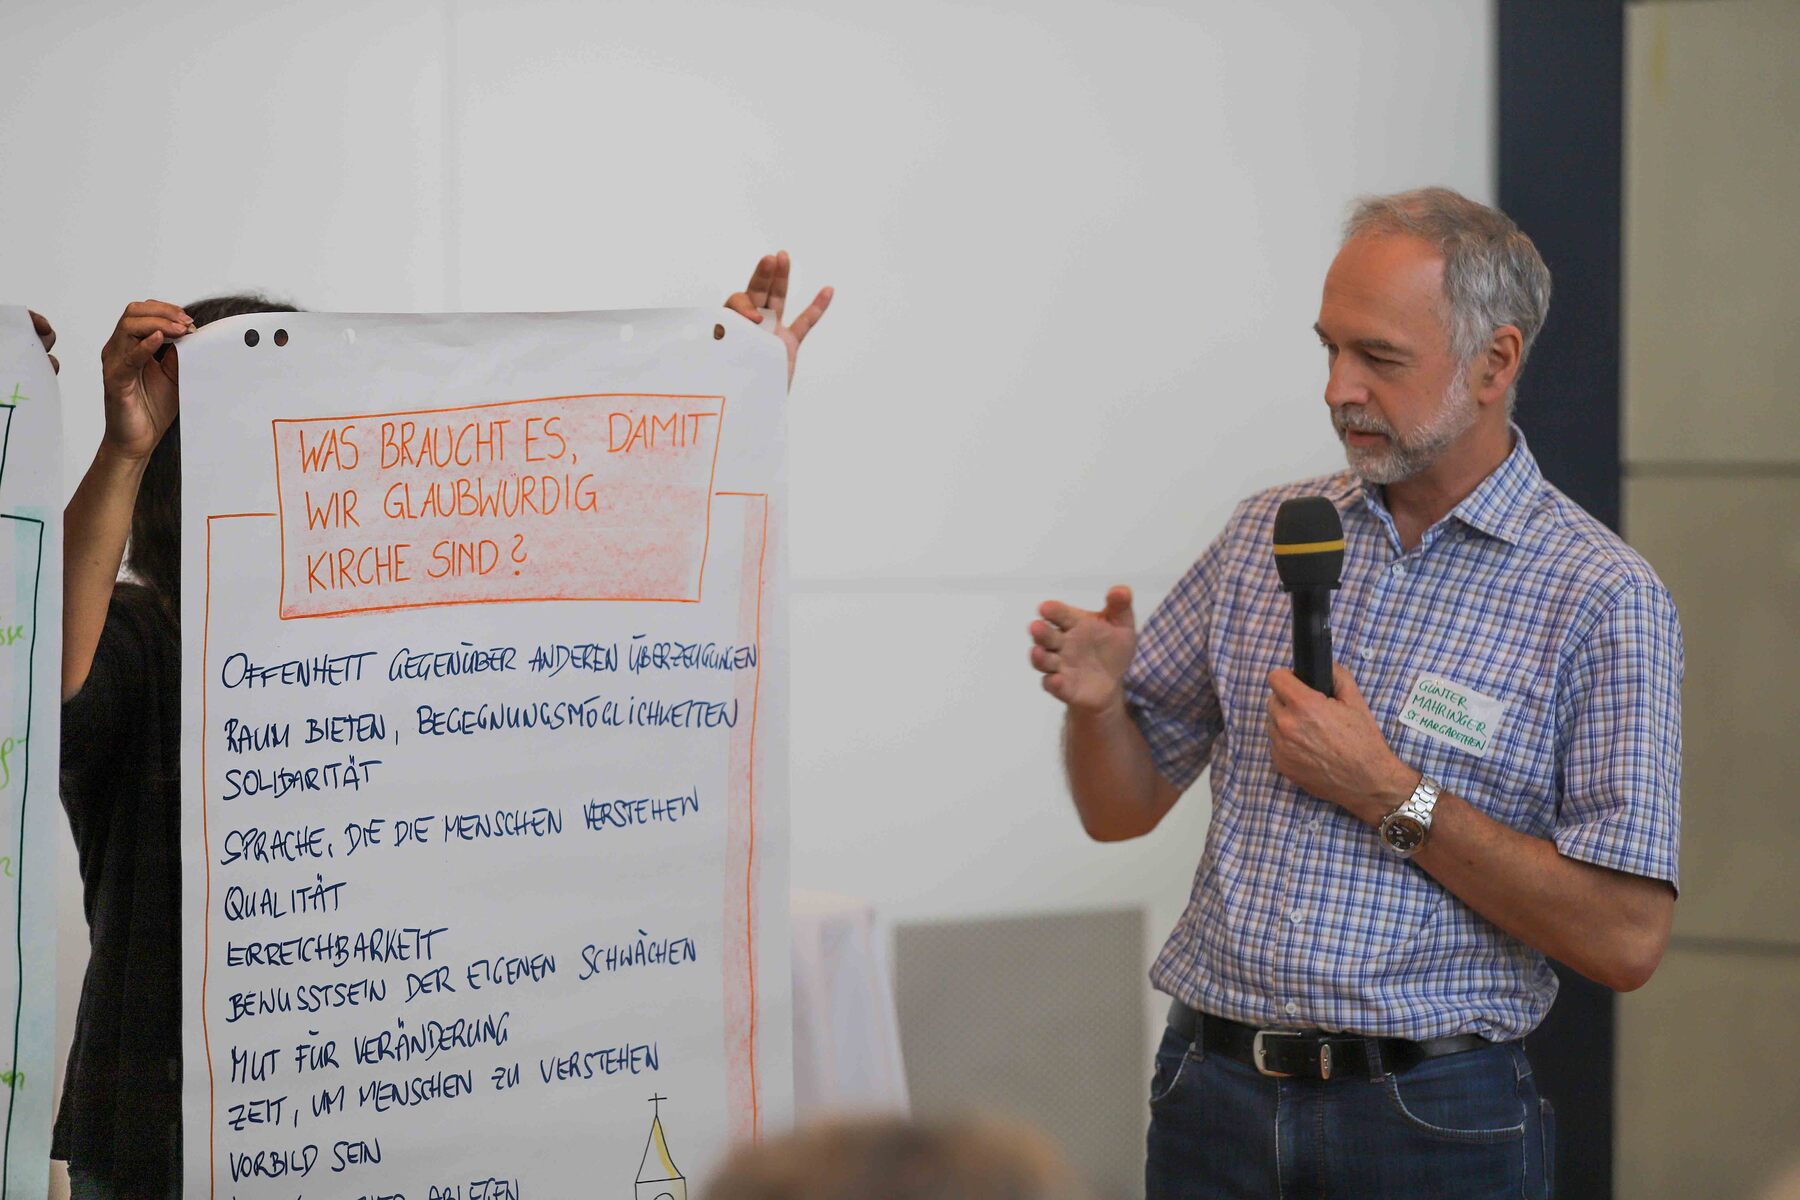 WAS BRAUCHT ES, DAMIT
WIR GLAUBWÜRDIG
KIRCHE SIND?
OFFENHEIT GEGENÜBER ANDEREN ÜBERZEUGUNGEN
RAUM BIETEN, BEGEGNUNGSMÖGLICHKEITEN
SOLIDARITÄT
SPRACHE, DIE DIE MENSCHEN VERSTEHEN
QUALITÄT
ERREICHBARKEIT
BEWUSSTSEIN DER EIGENEN SCHWÄCHEN
MUT FÜR VERÄNDERUNG
ZEIT, UM MENSCHEN ZU VERSTEHEN
VORBILD SEIN
ABLEGEN
GÜNTER
MAHRINGER
ST. MARGARETHEN